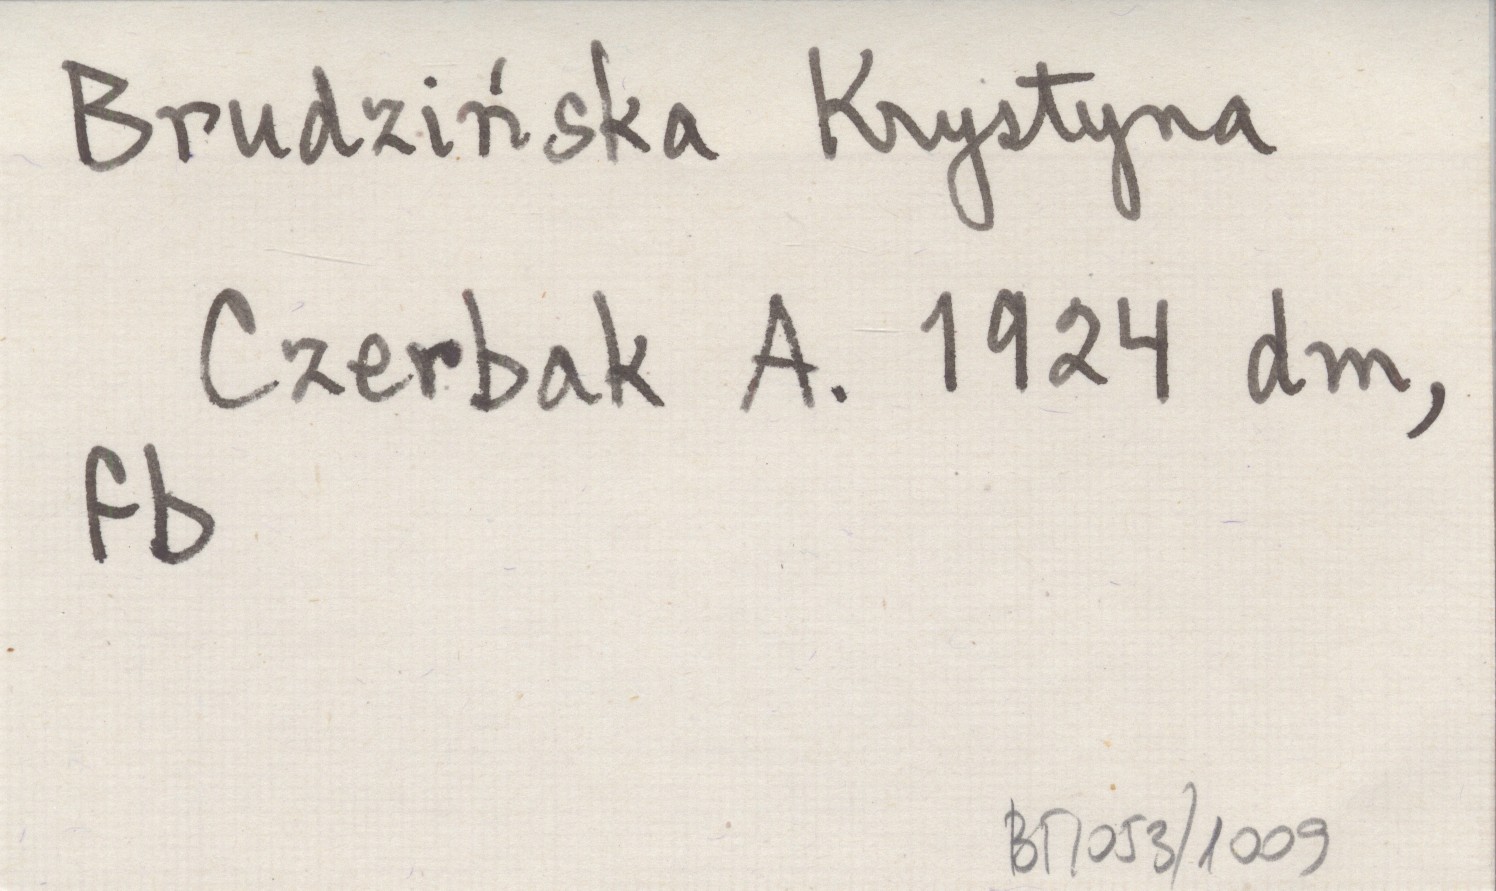 Brudzińska Krystyna
Czerbak A. 1924 dm,
fb
ВП053/1009